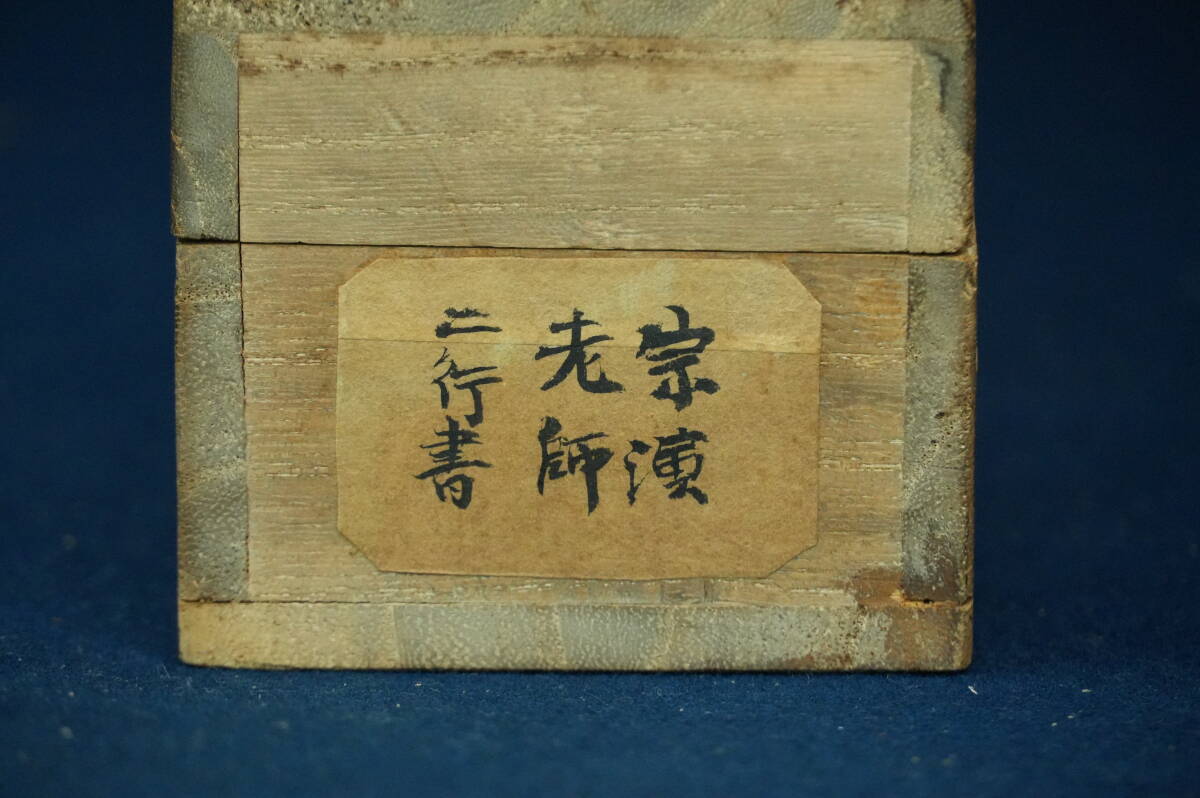 宗演
老師
二行書